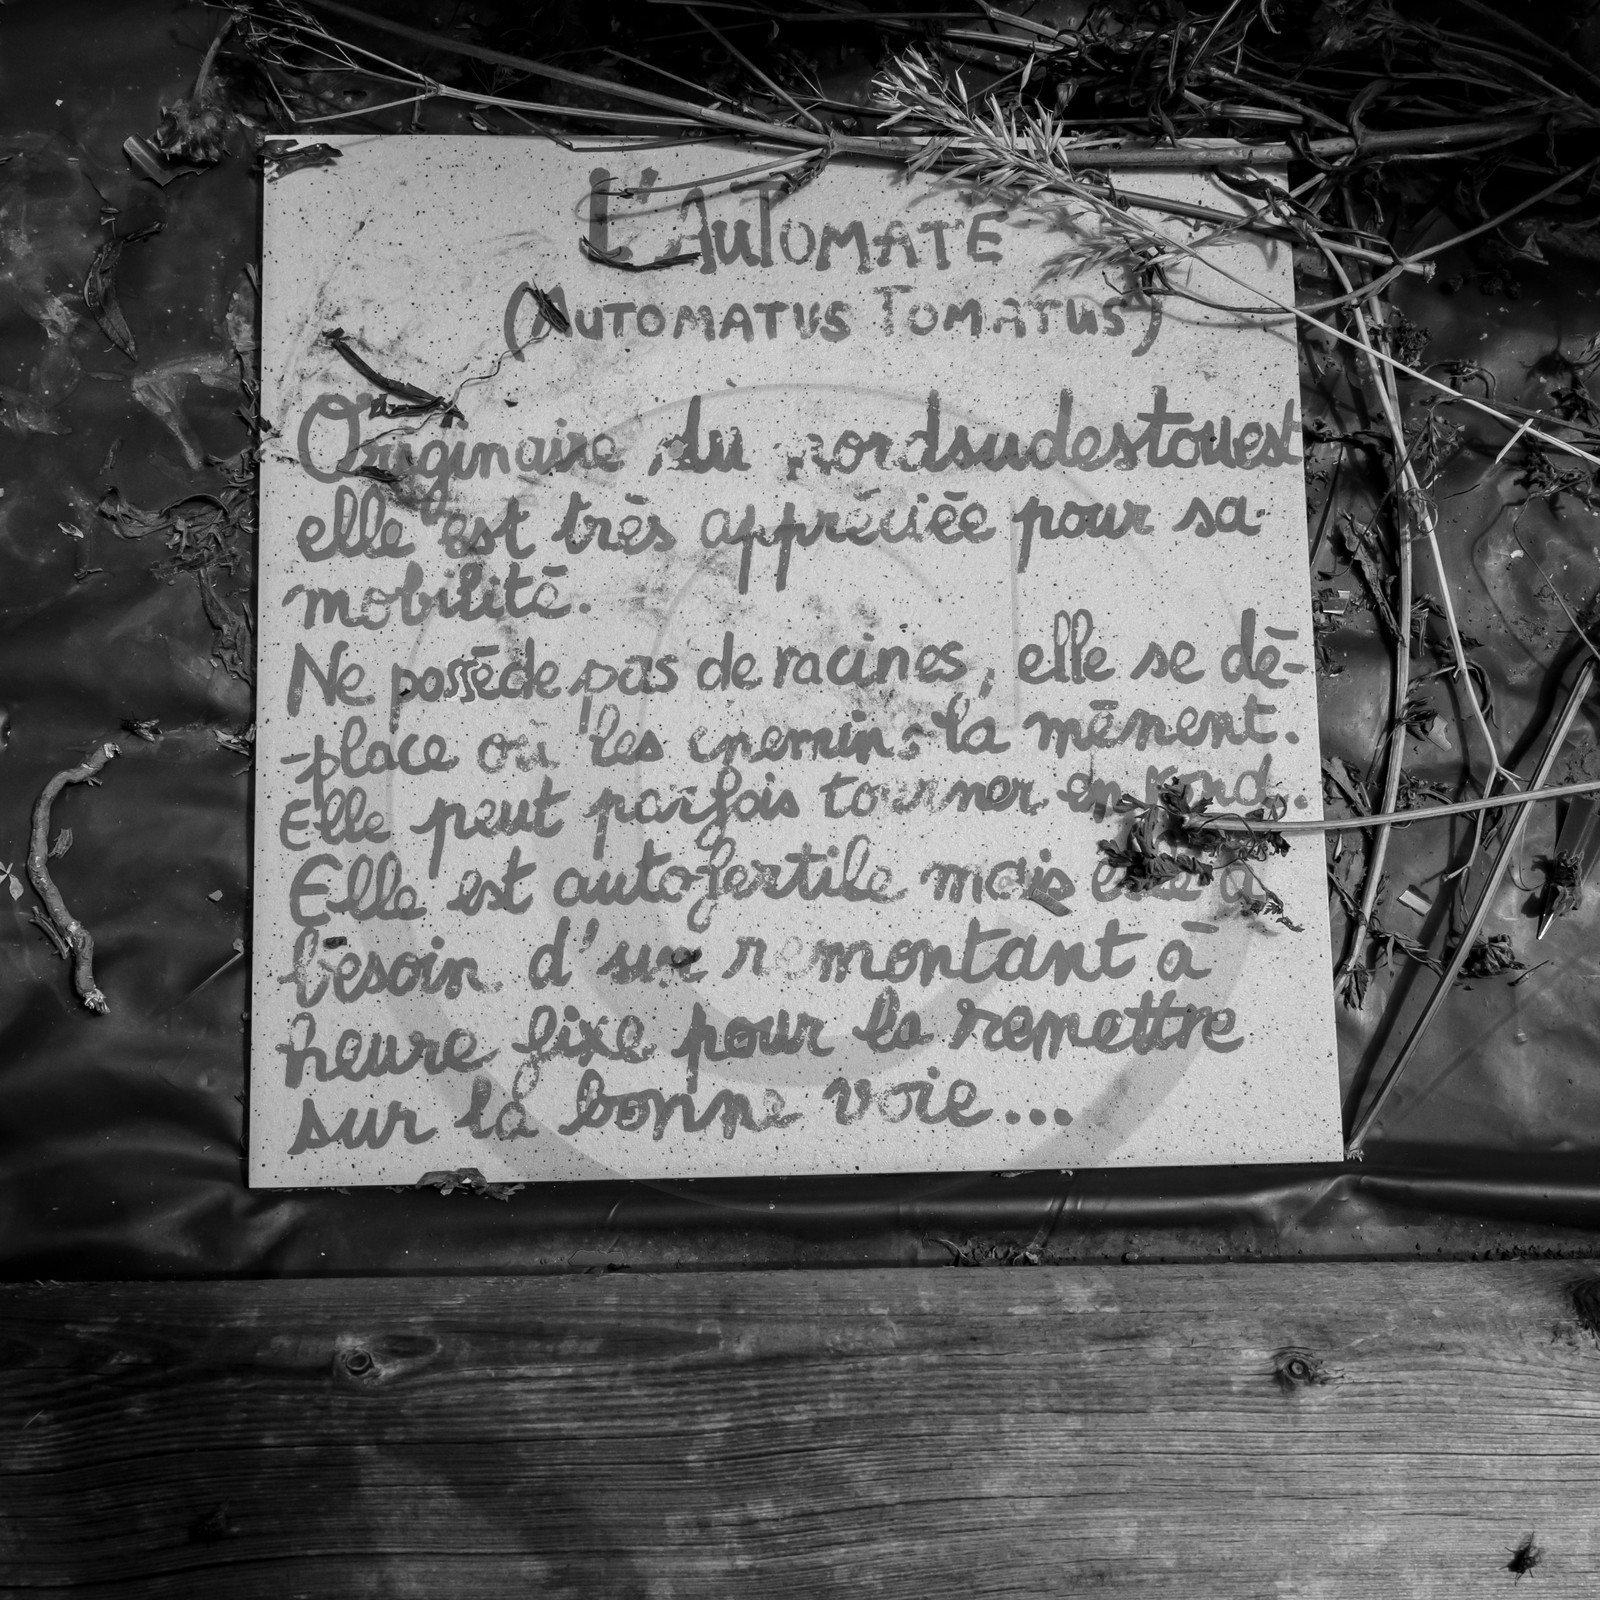 L'AUTOMATE
(AUTOMATUS TOMATUS)
Originaire du nordsudestouest
elle est très appréciée pour sa
mobilité.
Ne possède pas de racines, elle se dé-
-place où les chemins la mènent.
Elle peut parfois tourner en rond.
Elle est autofertile mais elle a
besoin d'un remontant à
heure fixe pour la remettre
sur la bonne voie...